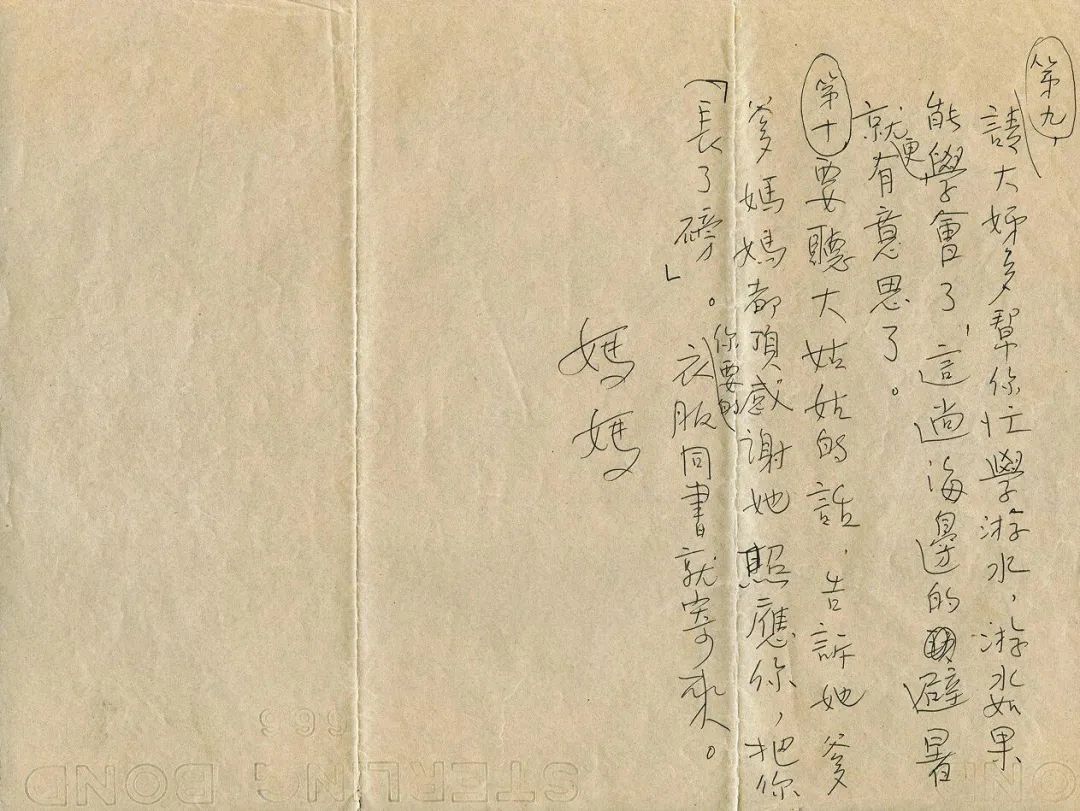 第九,
請大姊多幫你忙學游水,游水如果
能學會了,這趟海邊的避暑
就更有意思了。
第十 要聽大姑姑的話,告訴她爹
爹媽媽都頂感謝她照應你,把你
「長了磅」。你要的衣服同書就寄來。
媽媽
STERLING BOND